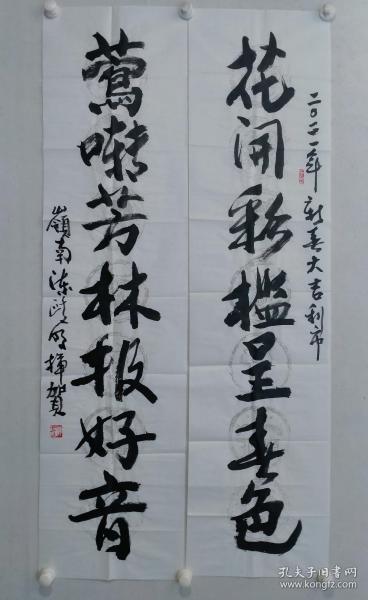 二〇二一年 新春大吉利市
花开彩槛呈春色
莺啭芳林报好音
岭南陈 明挥贺
孔夫子旧书网